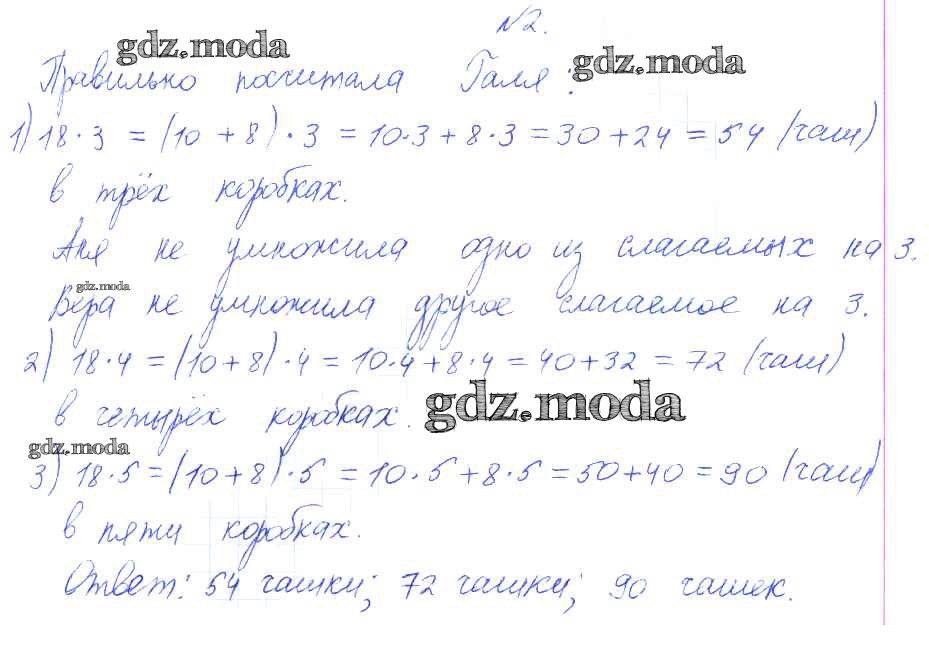 №2.
gdz.moda
gdz.moda
Правильно посчитала Галя:
1) 18·3 = (10 + 8)·3 = 10·3 + 8·3 = 30 + 24 = 54 (чаш)
в трёх коробках.
Аня не умножила одно из слагаемых на 3.
gdz.moda
Вера не умножила другое слагаемое на 3.
2) 18·4 = (10+8)·4 = 10·4 + 8·4 = 40+32 = 72 (чаш)
в четырёх коробках.
gdz.moda
gdz.moda
3) 18·5 = (10+8)·5 = 10·5 + 8·5 = 50+40 = 90 (чаш)
в пяти коробках.
Ответ: 54 чашки; 72 чашки; 90 чашек.